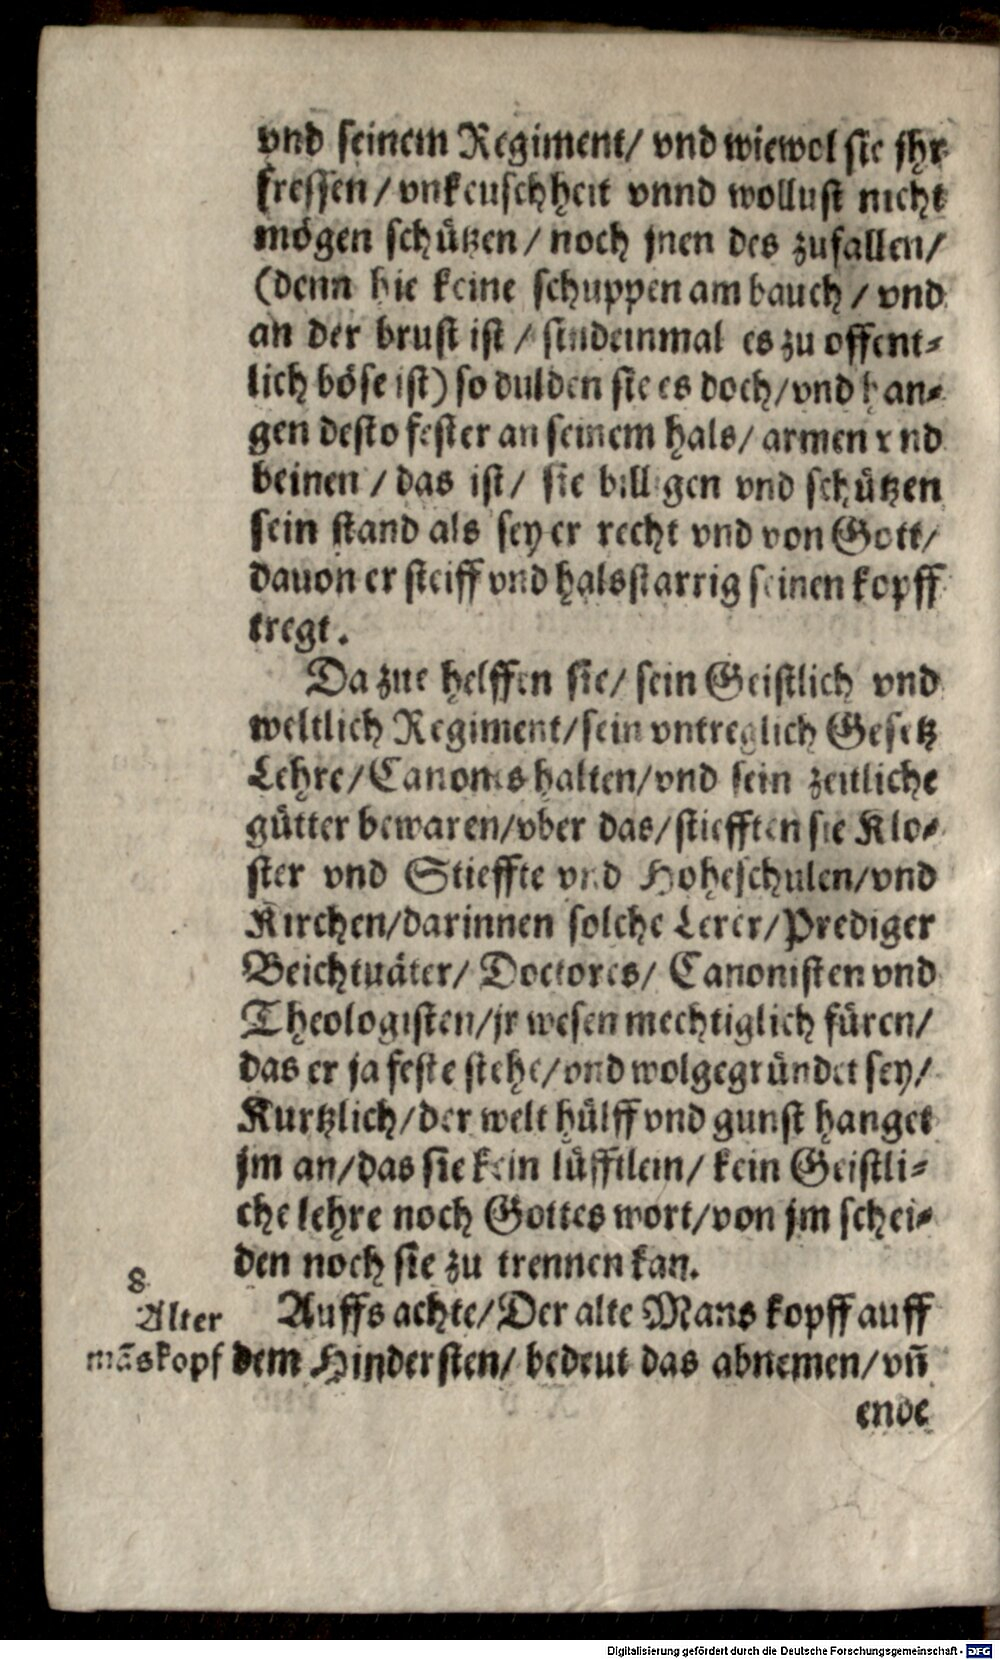 vnd seinem Regiment/ vnd wiewol sie jhr
fressen/ vnkeuschheit vnnd wollust nicht
mögen schützen/ noch jnen des zufallen/
(denn hie keine schuppen am bauch/ vnd
an der brust ist/ sindeinmal es zu offent-
lich böse ist) so dulden sie es doch/ vnd han-
gen desto fester an seinem hals/ armen vnd
beinen/ das ist/ sie billigen vnd schützen
sein stand als sey er recht vnd von Gott/
dauon er steiff vnd halsstarrig seinen kopff
tregt.
Da zue helffen sie/ sein Geistlich vnd
weltlich Regiment/ sein vntreglich Gesetz
Lehre/ Canones halten/ vnd sein zeitliche
gütter bewaren/ vber das/ stiefften sie Klo-
ster vnd Stieffte vnd Hoheschulen/ vnd
Kirchen/ darinnen solche Lerer/ Prediger
Beichtuäter/ Doctores/ Canonisten vnd
Theologisten/ jr wesen mechtiglich füren/
das er ja feste stehe/ vnd wolgegründet sey/
Kurtzlich/ der welt hülff vnd gunst hanget
jm an/ das sie kein lüfftlein/ kein Geistli-
che lehre noch Gottes wort/ von jm schei-
den noch sie zu trennen kan.
8
Alter
mãskopf
Auffs achte/ Der alte Mans kopff auff
dem Hindersten/ bedeut das abnemen/ vñ
ende
Digitalisierung gefördert durch die Deutsche Forschungsgemeinschaft - DFG